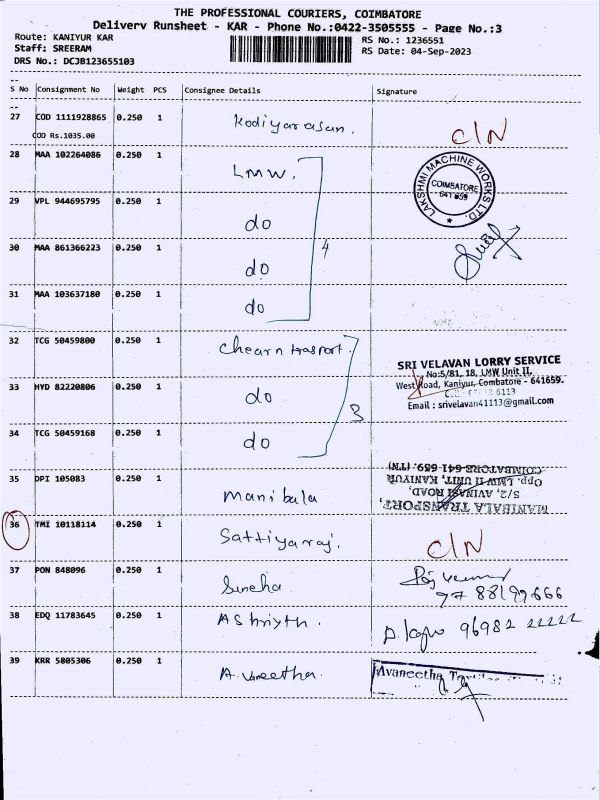 THE PROFESSIONAL COURIERS, COIMBATORE
Delivery Runsheet - KAR - Phone No.:0422-3505555 - Page No.:3
Route: KANIYUR KAR
RS No.: 1236551
Staff: SREERAM
RS Date: 04-Sep-2023
DRS No.: DCJB123655103
S No Consignment No Weight PCS Consignee Details Signature
27 COD 1111928865 0.250 1 Kodiyarasan. C/N
COD Rs.1035.00
28 MAA 102264086 0.250 1 LMW.
LAKSHMI MACHINE WORKS LTD.
COIMBATORE
641 659
29 VPL 944695795 0.250 1 do
30 MAA 861366223 0.250 1 do
4
31 MAA 103637180 0.250 1 do
32 TCG 50459800 0.250 1 Chearn trasport.
SRI VELAVAN LORRY SERVICE
No:5/81, 18, LMW Unit II,
West Road, Kaniyur, Combatore - 641659.
6113
Email : srivelavan41113@gmail.com
33 HYD 82220806 0.250 1 do
3
34 TCG 50459168 0.250 1 do
35 DPI 105083 0.250 1 Manibala
MANIBALA TRANSPORT,
5/2, AVINASI ROAD,
Opp. LMW II UNIT, KANIYUR
COIMBATORE-641 659. (TN)
36 TMI 10118114 0.250 1 Sattiyaraj. C/N
37 PON 848096 0.250 1 Sneha
97 88199666
38 EDQ 11783645 0.250 1 AShriyth. 96982 22222
39 KRR 5805306 0.250 1 A.vaneetha.
Avaneetha